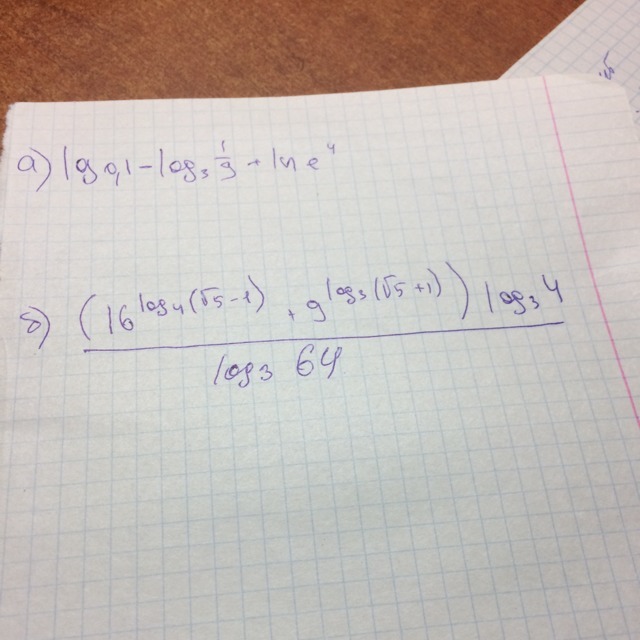 а) lg 0,1 - log₃ 1/3 + ln e⁴
б) (16^(log₄(√5-1)) + 9^(log₃(√5+1))) log₃4
log₃ 64